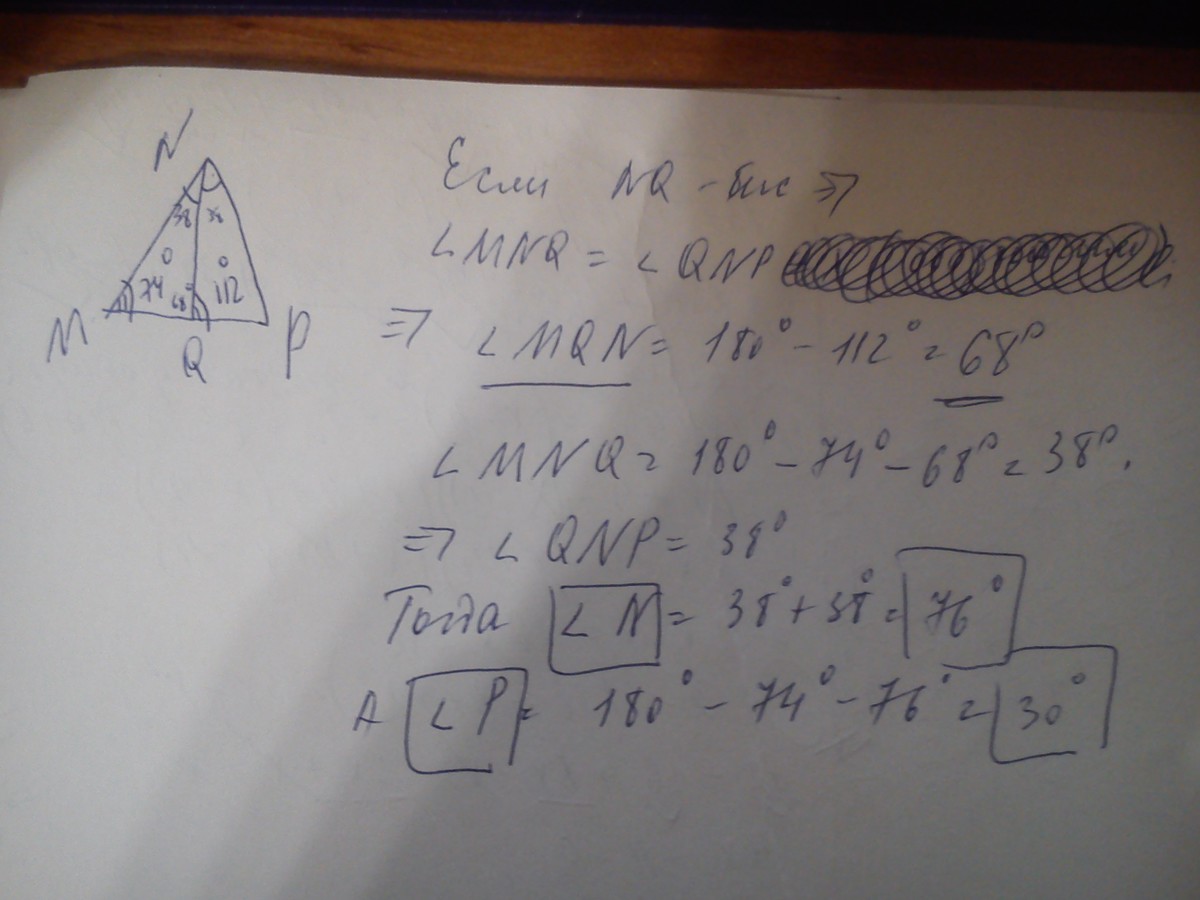 N
38 38
74° 112°
68°
M Q P
Если NQ - бис ⇒
∠MNQ = ∠QNP
⇒ ∠MQN = 180° - 112° = 68°
∠MNQ = 180° - 74° - 68° = 38°.
⇒ ∠QNP = 38°
Тогда ∠N = 38° + 38° = 76°
А ∠P = 180° - 74° - 76° = 30°